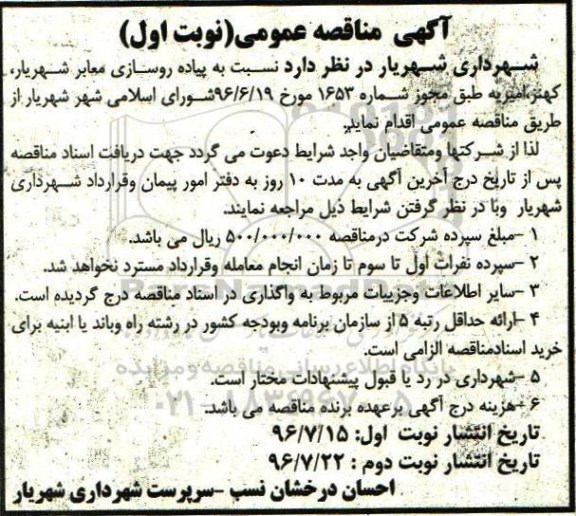 آگهی مناقصه عمومی(نوبت اول)
شهرداری شهریار در نظر دارد نسبت به پیاده روسازی معابر شهریار،
کهنز،امیریه طبق مجوز شماره ۱۶۵۳ مورخ ۹۶/۶/۱۹شورای اسلامی شهر شهریار از
طریق مناقصه عمومی اقدام نماید.
لذا از شرکتها ومتقاضیان واجد شرایط دعوت می گردد جهت دریافت اسناد مناقصه
پس از تاریخ درج آخرین آگهی به مدت ۱۰ روز به دفتر امور پیمان وقرارداد شهرداری
شهریار وبا در نظر گرفتن شرایط ذیل مراجعه نمایند.
۱ -مبلغ سپرده شرکت درمناقصه ۵۰۰/۰۰۰/۰۰۰ ریال می باشد.
۲ -سپرده نفرات اول تا سوم تا زمان انجام معامله وقرارداد مسترد نخواهد شد.
۳ -سایر اطلاعات وجزییات مربوط به واگذاری در اسناد مناقصه درج گردیده است.
۴ -ارائه حداقل رتبه ۵ از سازمان برنامه وبودجه کشور در رشته راه وباند یا ابنیه برای
خرید اسنادمناقصه الزامی است.
۵ -شهرداری در رد یا قبول پیشنهادات مختار است.
۶ -هزینه درج آگهی برعهده برنده مناقصه می باشد.
تاریخ انتشار نوبت اول: ۹۶/۷/۱۵
تاریخ انتشار نوبت دوم : ۹۶/۷/۲۲
احسان درخشان نسب -سرپرست شهرداری شهریار
ParsNamadData
پایگاه اطلاع رسانی مناقصه و مزایده
۰۲۱-۸۸۳۴۹۶۷۰-۵